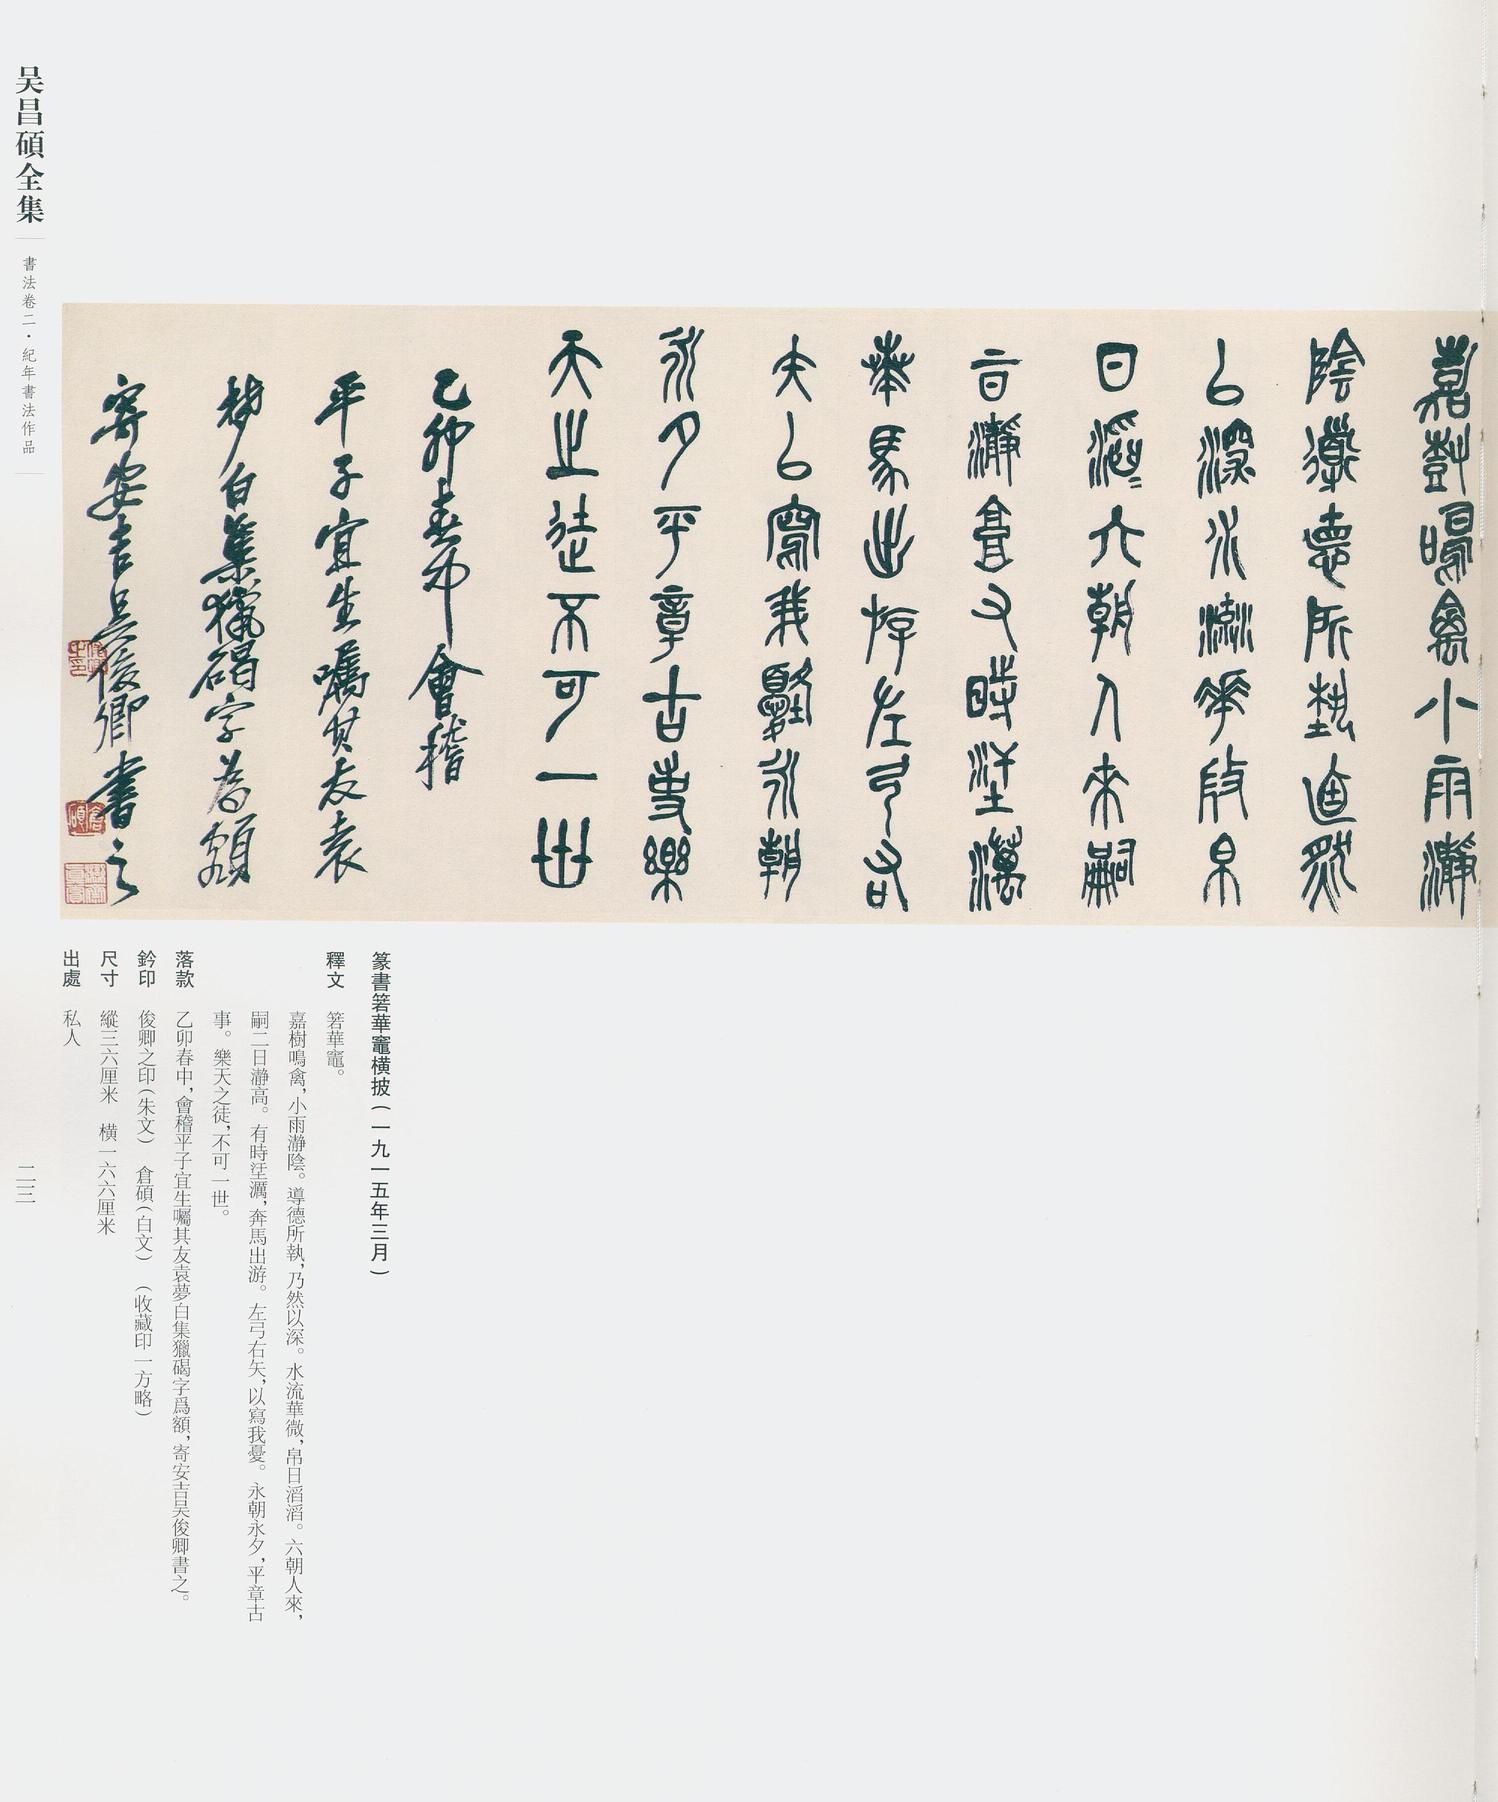 嘉樹鳴禽小雨瀞
陰導德所執逌然
以深水流華微帛
日滔=六朝人來嗣
二日瀞高又時𡉏澫
奔馬出斿左弓右
矢以寫我憂永朝
永夕平章古事樂
天之徒不可一世
乙卯春中會稽
平子宜生囑其友袁
夢白集獵碣字為額
寄安吉吳俊卿書之
俊卿之印
倉碩
篆書箬華竈橫披(一九一五年三月)
釋文 箬華竈。
嘉樹鳴禽,小雨瀞陰。導德所執,乃然以深。水流華微,帛日滔滔。六朝人來,
嗣二日瀞高。有時𡉏澫,奔馬出游。左弓右矢,以寫我憂。永朝永夕,平章古
事。樂天之徒,不可一世。
落款 乙卯春中,會稽平子宜生囑其友袁夢白集獵碣字爲額,寄安吉吴俊卿書之。
鈐印 俊卿之印(朱文) 倉碩(白文) (收藏印一方略)
尺寸 縱三六厘米 橫一六六厘米
出處 私人
吴昌碩全集
書法卷二·紀年書法作品
二三三